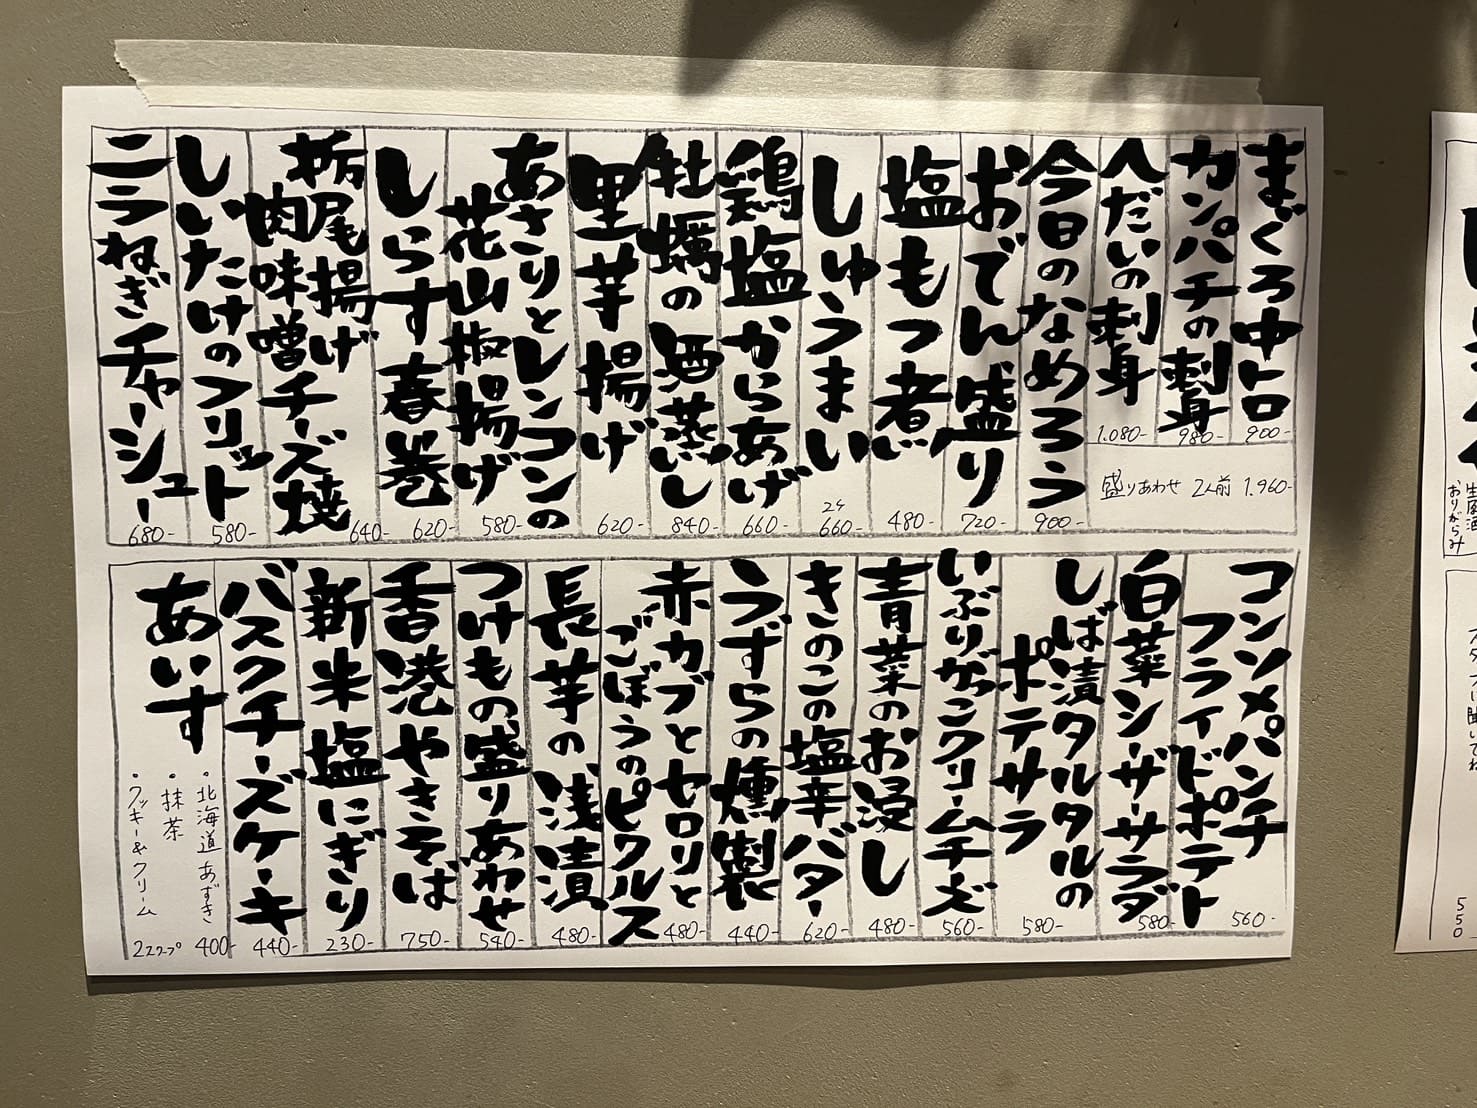 まぐろ中トロ
900-
カンパチの刺身
980-
へだいの刺身
1.080-
盛りあわせ 2人前 1.960-
今日のなめろう
900-
おでん盛り
720-
塩もつ煮
480-
しゅうまい
2ケ
660-
鶏塩からあげ
660-
牡蠣の酒蒸し
840-
里芋揚げ
620-
あさりとレンコンの
花山椒揚げ
580-
しらす春巻
620-
栃尾揚げ
肉味噌チーズ焼
640-
しいたけのフリット
580-
ニラねぎチャーシュー
680-
コンソメパンチ
フライドポテト
560-
白菜シーザーサラダ
580-
しば漬タルタルの
ポテサラ
580-
いぶりがっこクリームチーズ
560-
青菜のお浸し
480-
きのこの塩辛バター
620-
うずらの燻製
440-
赤カブとセロリと
ごぼうのピクルス
480-
長芋の浅漬
480-
つけもの盛りあわせ
540-
香港やきそば
750-
新米塩にぎり
230-
バスクチーズケーキ
440-
あいす
・北海道あずき
・抹茶
・クッキー&クリーム
2スクープ 400-
生風酒
おりがらみ
550